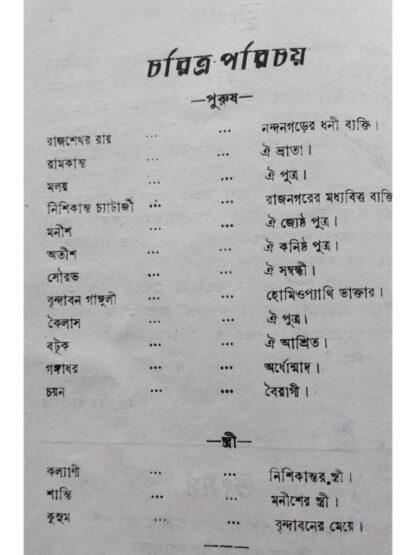 চরিত্র পরিচয়
—পুরুষ—
রাজশেখর রায় ... ... নন্দনগড়ের ধনী ব্যক্তি।
রামকান্ত ... ... ঐ ভ্রাতা।
মলয় ... ... ঐ পুত্র।
নিশিকান্ত চ্যাটার্জী ... ... রাজনগরের মধ্যবিত্ত ব্যক্তি
মনীশ ... ... ঐ জ্যেষ্ঠ পুত্র।
অতীশ ... ... ঐ কনিষ্ঠ পুত্র।
সৌরভ ... ... ঐ সম্বন্ধী।
বৃন্দাবন গাঙ্গুলী ... ... হোমিওপ্যাথি ডাক্তার।
কৈলাস ... ... ঐ পুত্র।
বটুক ... ... ঐ আশ্রিত।
গঙ্গাধর ... ... অর্ধোন্মাদ।
চয়ন ... ... বৈরাগী।
—স্ত্রী—
কল্যাণী ... ... নিশিকান্তর স্ত্রী।
শান্তি ... ... মনীশের স্ত্রী।
কুসুম ... ... বৃন্দাবনের মেয়ে।